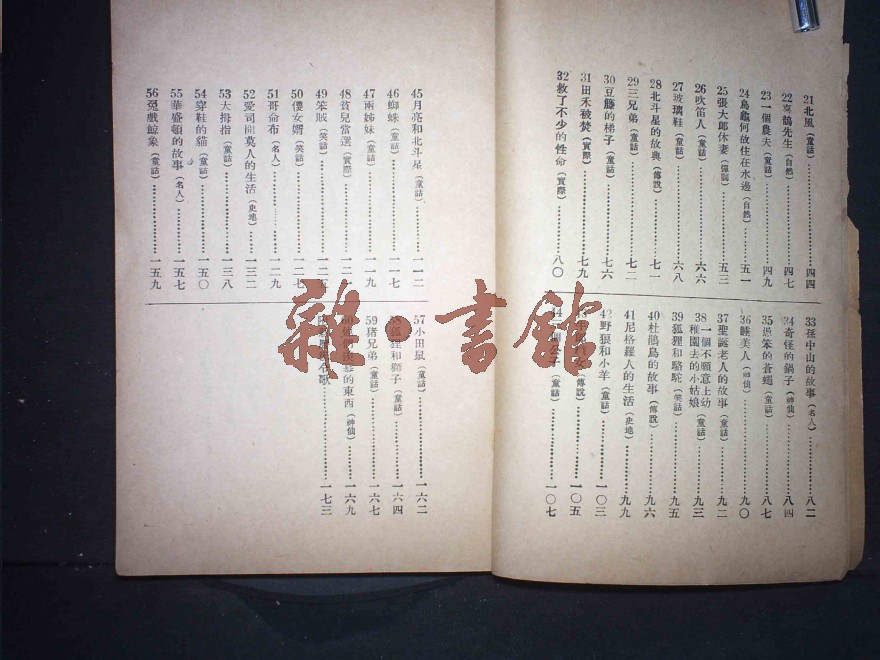 21北風（童話）……44
22喜鶴先生（自然）……47
23一個農夫（童話）……49
24烏龜何故住在水邊（自然）……五一
25張大郎休妻……五三
26吹笛人（童話）……六六
27玻璃鞋（童話）……六八
28北斗星的故典（傳說）……七一
29三兄弟（童話）……七二
30豆籐的梯子（童話）……七六
31田禾被焚（實際）……七九
32救了不少的性命（實際）……八〇
33孫中山的故事（名人）……八二
34奇怪的鍋子（神仙）……八四
35愚笨的蒼蠅（童話）……八七
36睡美人（神仙）……九〇
37聖誕老人的故事（童話）……九二
38一個不願意上幼稚園去的小姑娘（童話）……九三
39狐狸和駱駝（笑話）……九五
40杜鵑鳥的故事（傳說）……九六
41尼格羅人的生活（史地）……九九
42野狼和小羊（童話）……一〇三
（傳說）……一〇五
（童話）……一〇七
45月亮和北斗星（童話）……一一二
46蜘蛛（童話）……一一七
47兩姊妹（童話）……一一九
48貧兒當選（實際）
49笨賊（笑話）……一二五
50傻女婿（笑話）……一二七
51哥侖布（名人）……一二九
52愛司開莫人的生活（史地）……一三二
53大拇指（童話）……一三八
54穿鞋的貓（童話）……一五〇
55華盛頓的故事（名人）……一五七
56兔戲鯨象（童話）……一五九
57小田鼠（童話）……一六二
58狐狸和獅子（童話）……一六四
59猪兄弟（童話）……一六七
60的東西（神仙）……一六九
歌……一七三
雜·書館